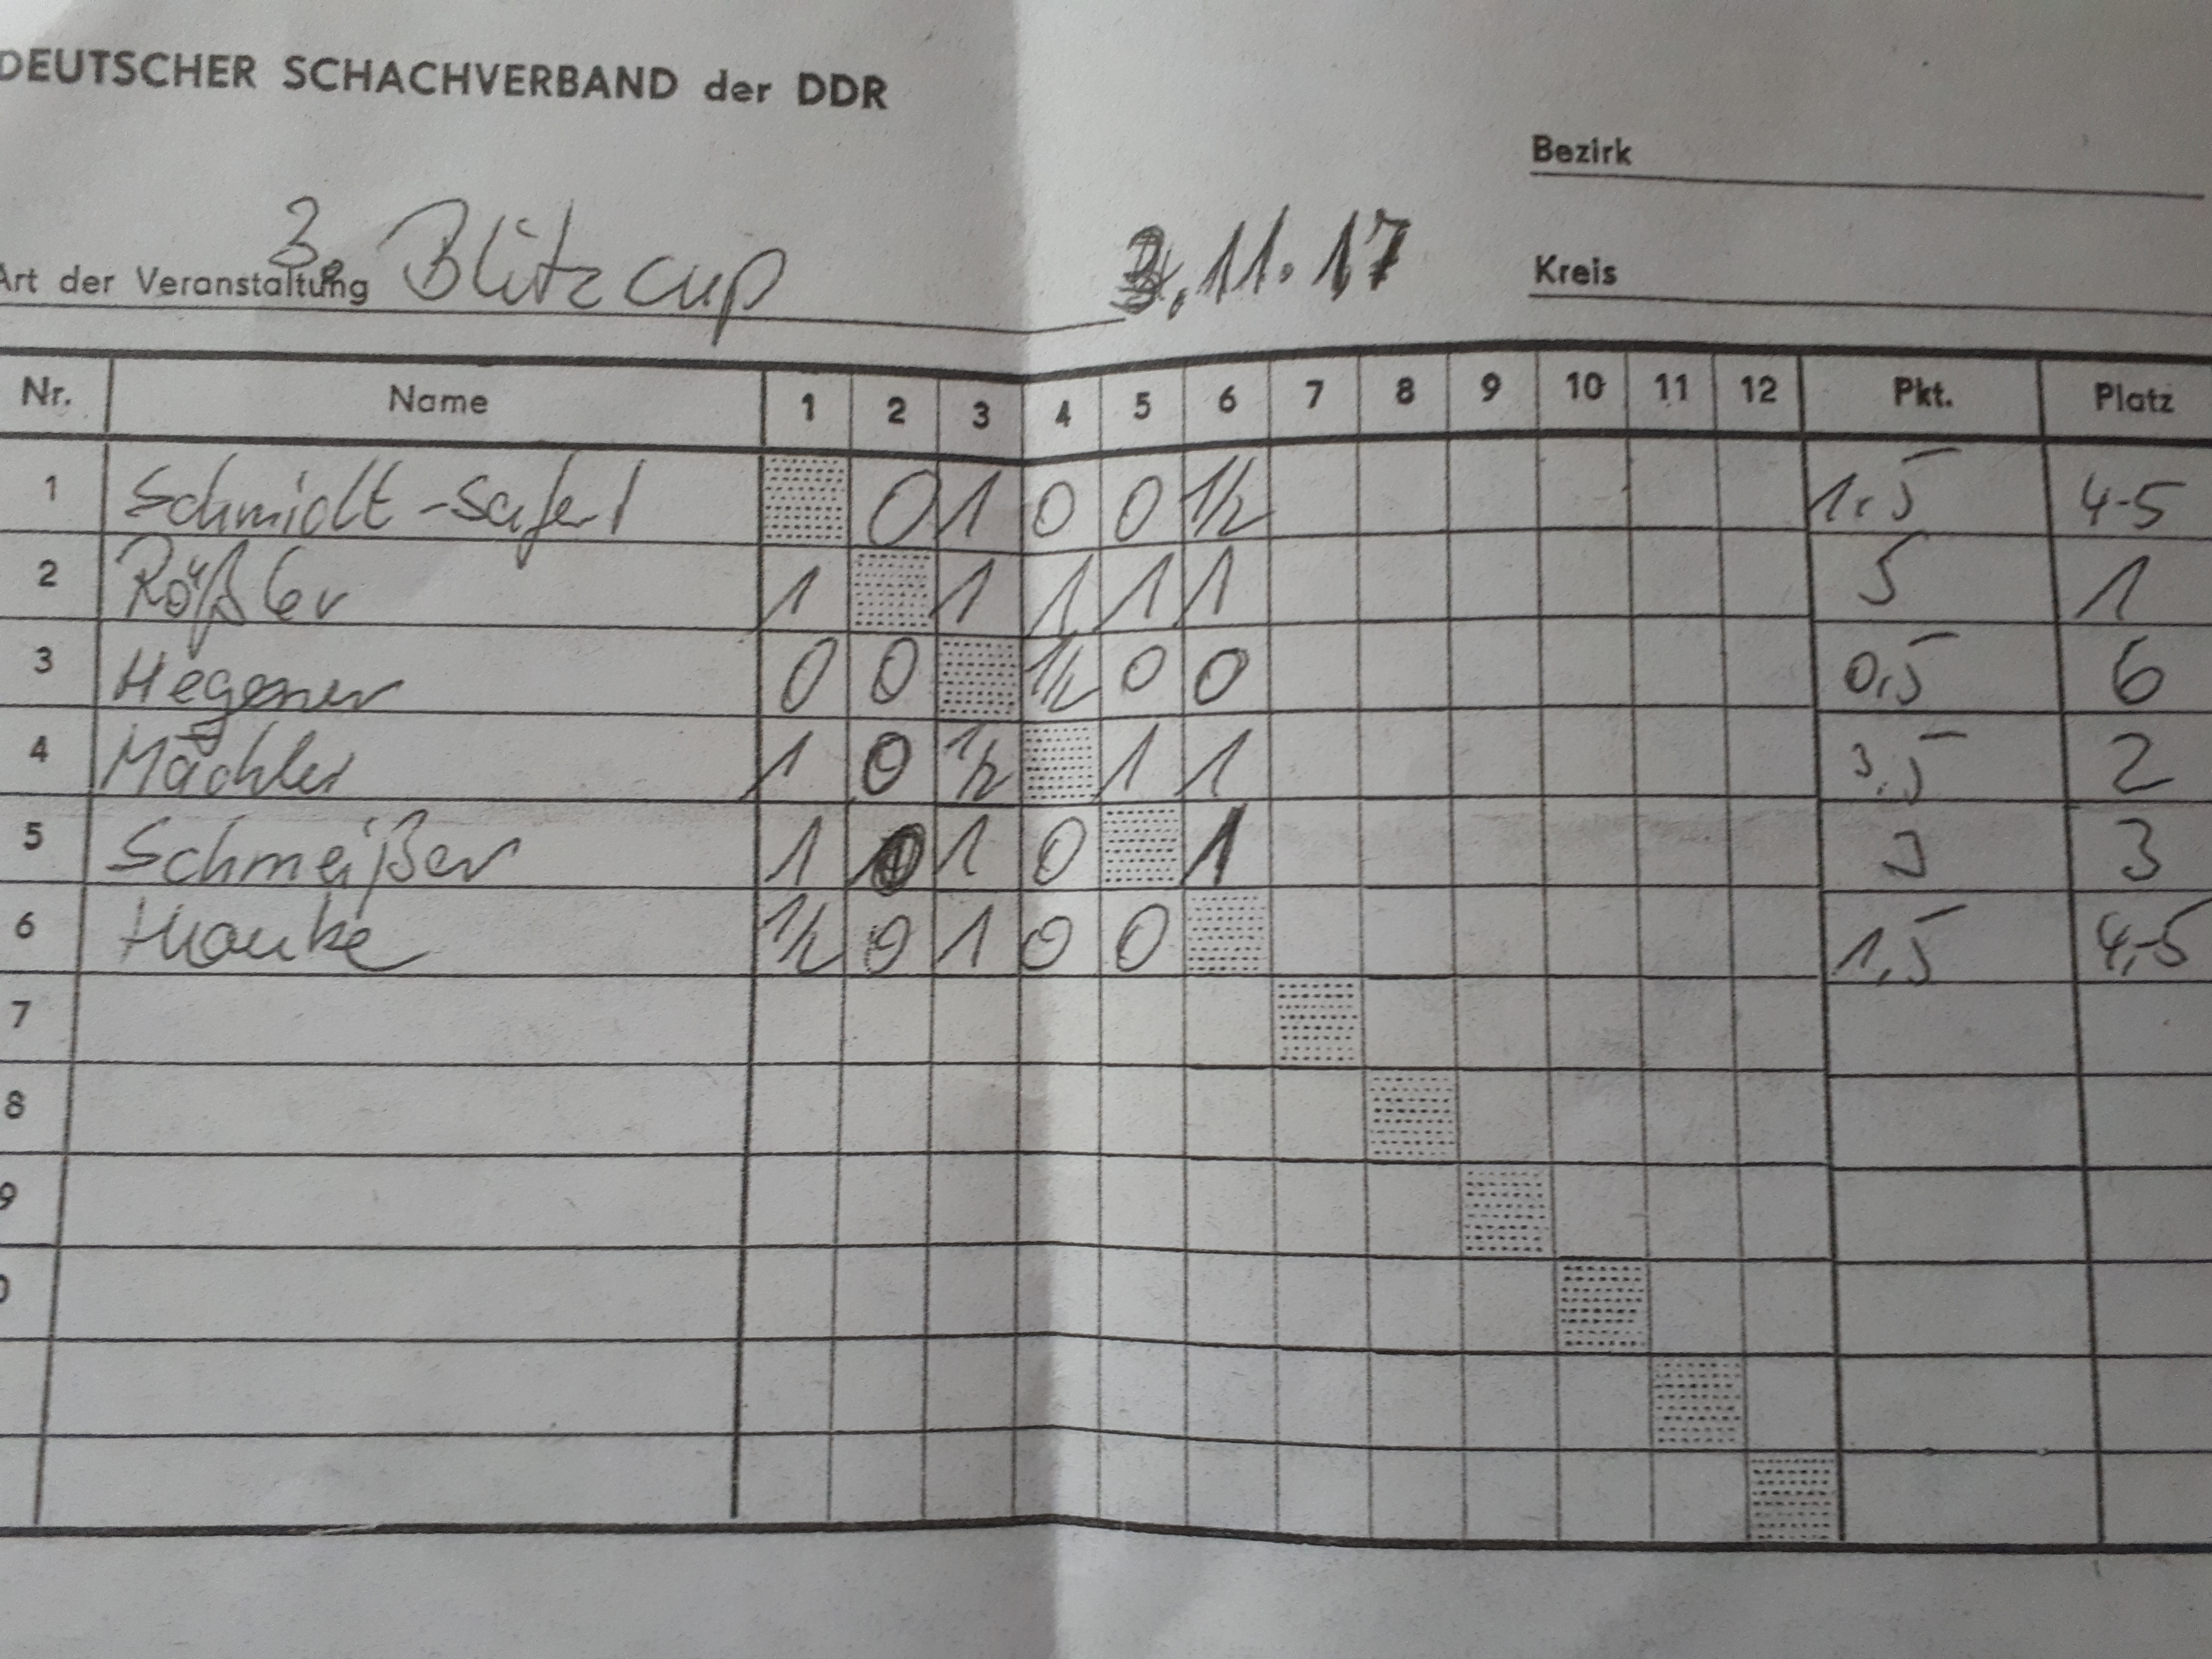 DEUTSCHER SCHACHVERBAND der DDR
Bezirk
Art der Veranstaltung 3. Blitzcup 3.11.17
Kreis
Nr. Name 1 2 3 4 5 6 7 8 9 10 11 12 Pkt. Platz
1 Schmidt-Schäferl 0 1 0 0 1/2 1,5 4-5
2 Rößler 1 1 1 1 1 5 1
3 Hegener 0 0 1/2 0 0 0,5 6
4 Mächler 1 0 1/2 1 1 3,5 2
5 Schmeißer 1 0 1 0 1 3 3
6 1/2 0 1 0 0 1,5 4,-5
7
8
9
0